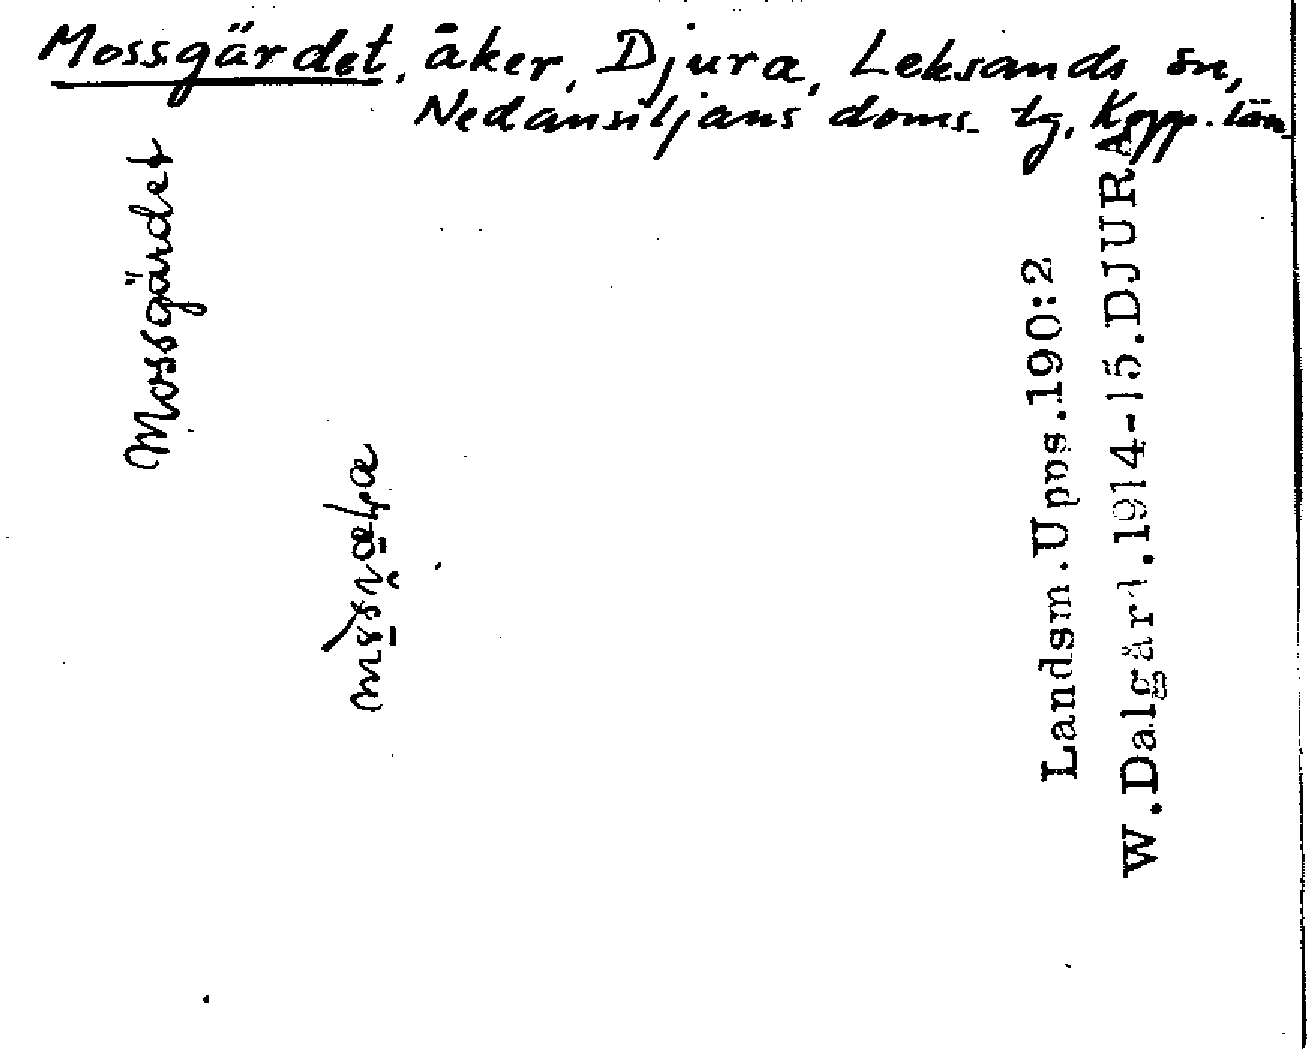 Mossgärdet, åker, Djura, Leksands sn,
Nedansiljans doms. tg, Kopp. län
Mossgärdet
Landsm.Upps.190:2
W.Dalgärd.1914-15.DJURA